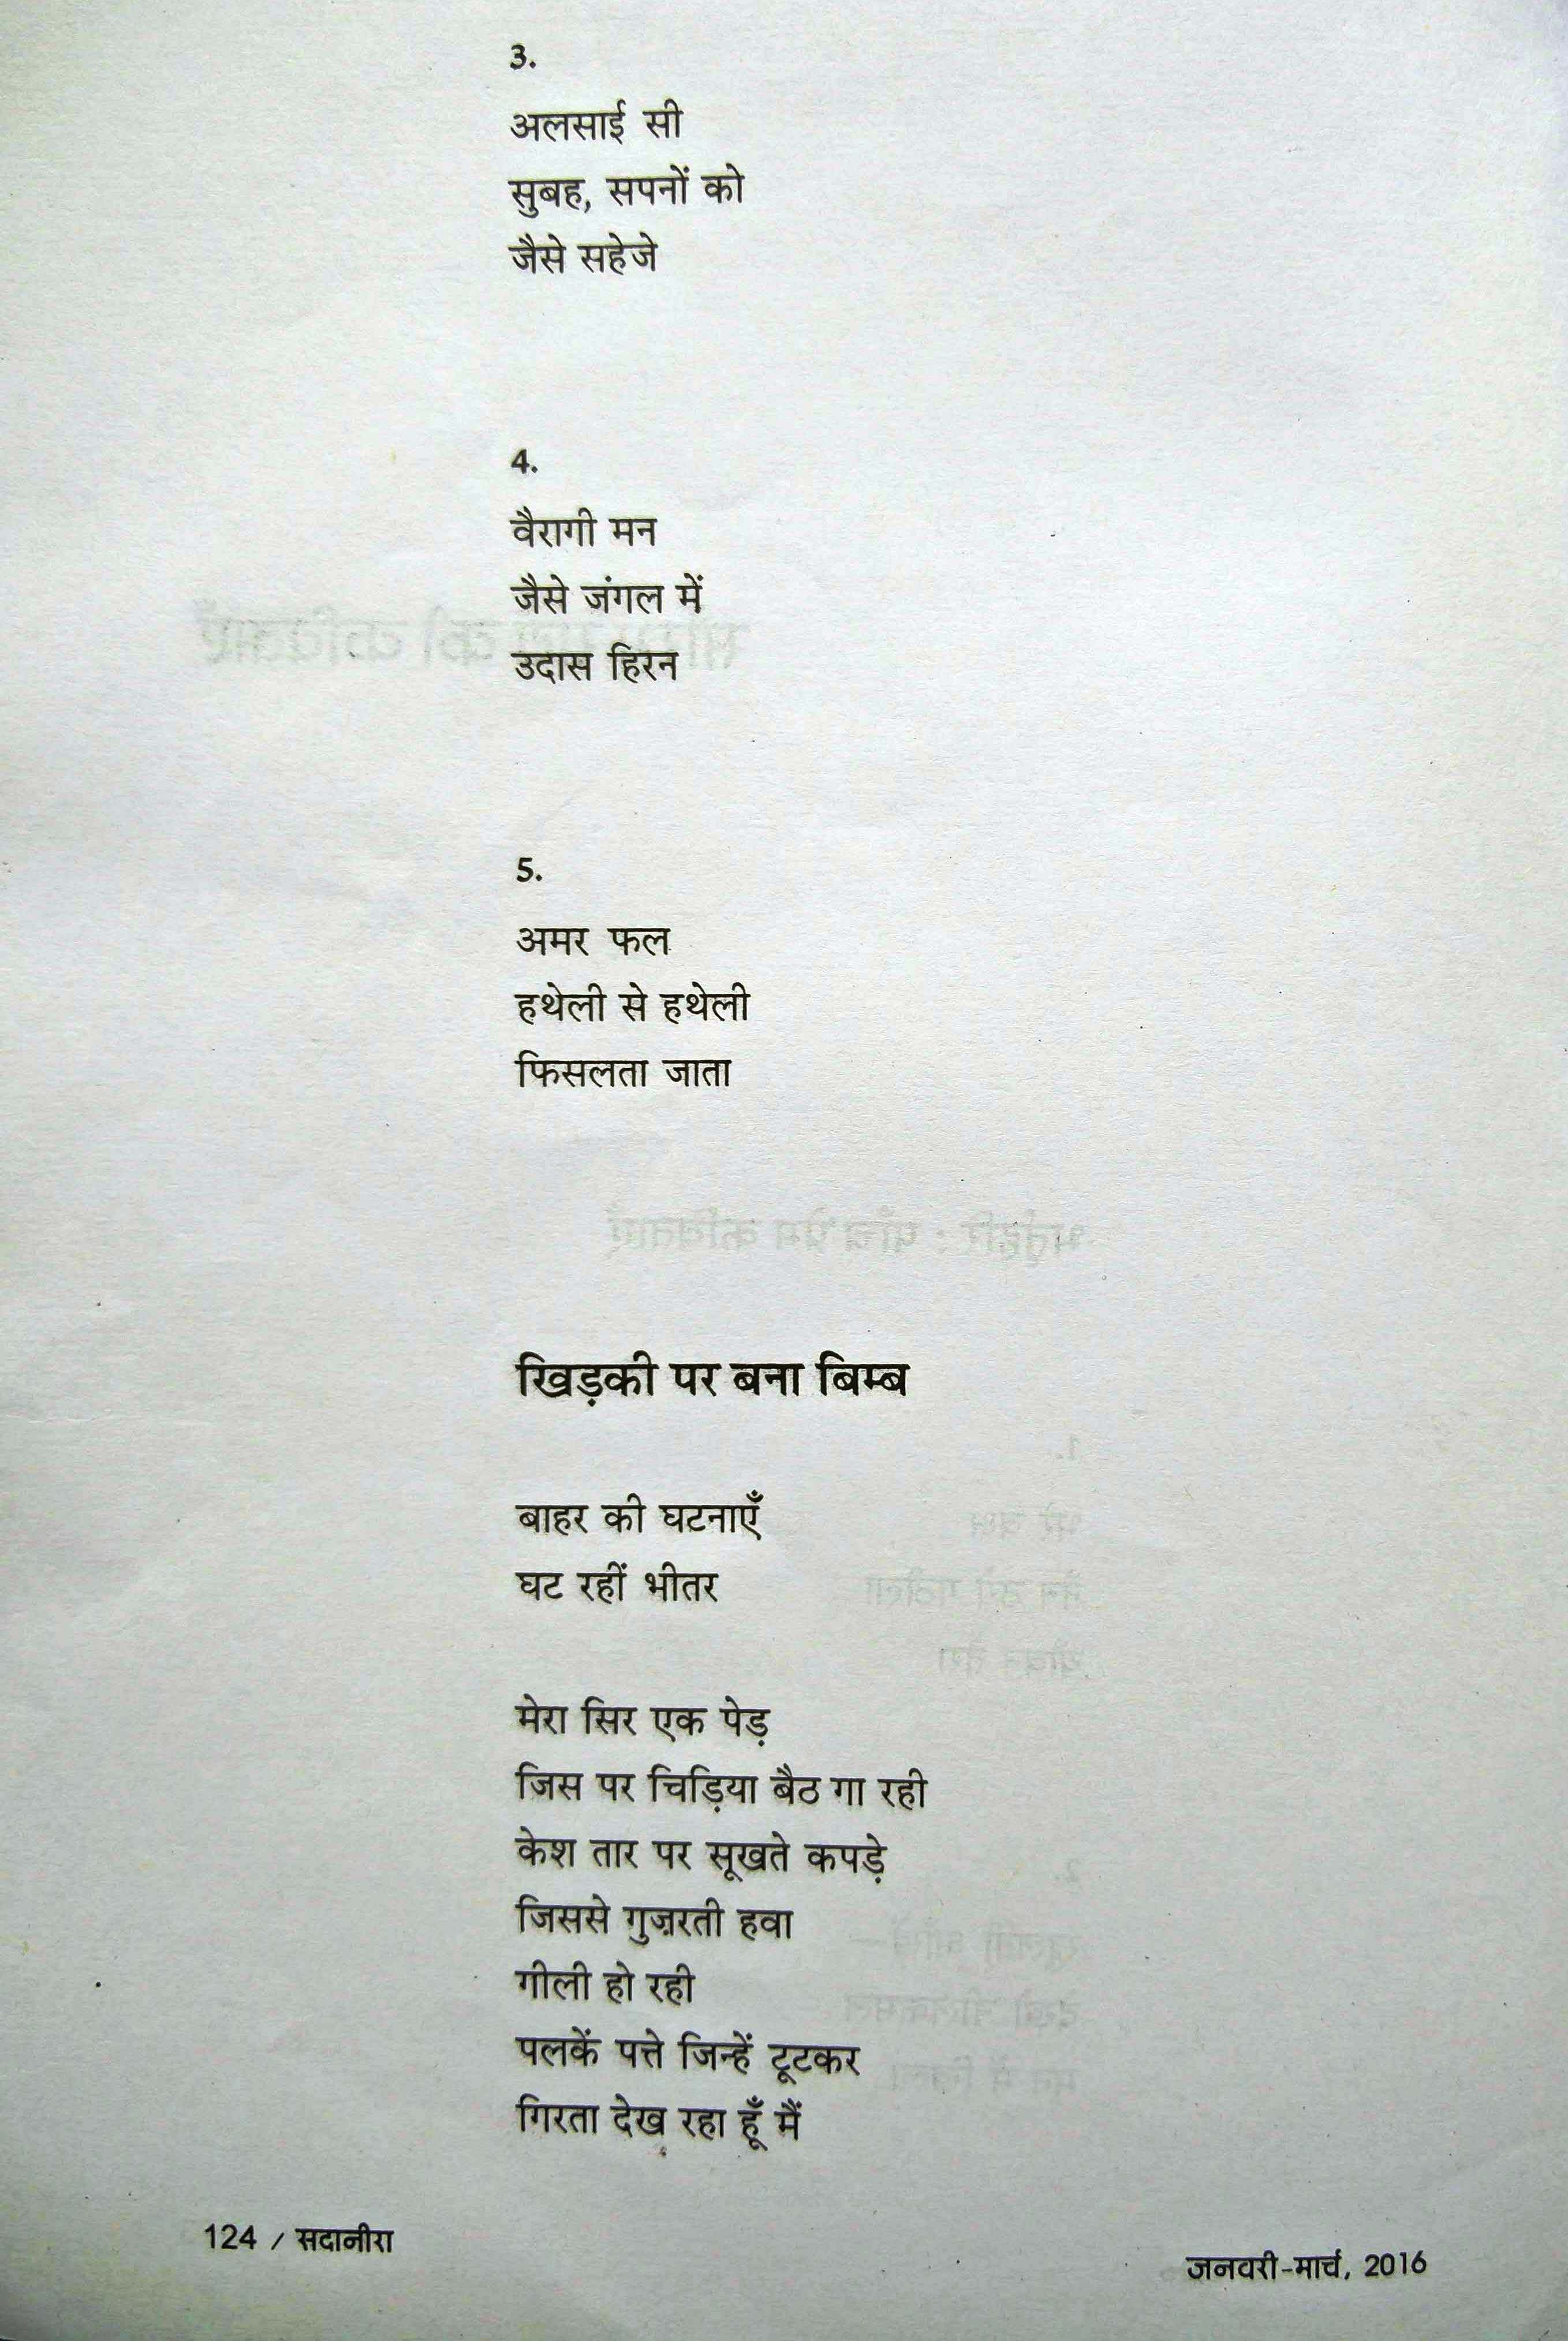 3.
अलसाई सी
सुबह, सपनों को
जैसे सहेजे
4.
वैरागी मन
जैसे जंगल में
उदास हिरन
5.
अमर फल
हथेली से हथेली
फिसलता जाता
खिड़की पर बना बिम्ब
बाहर की घटनाएँ
घट रहीं भीतर
मेरा सिर एक पेड़
जिस पर चिड़िया बैठ गा रही
केश तार पर सूखते कपड़े
जिससे गुज़रती हवा
गीली हो रही
पलकें पत्ते जिन्हें टूटकर
गिरता देख रहा हूँ मैं
124 / सदानीरा
जनवरी-मार्च, 2016